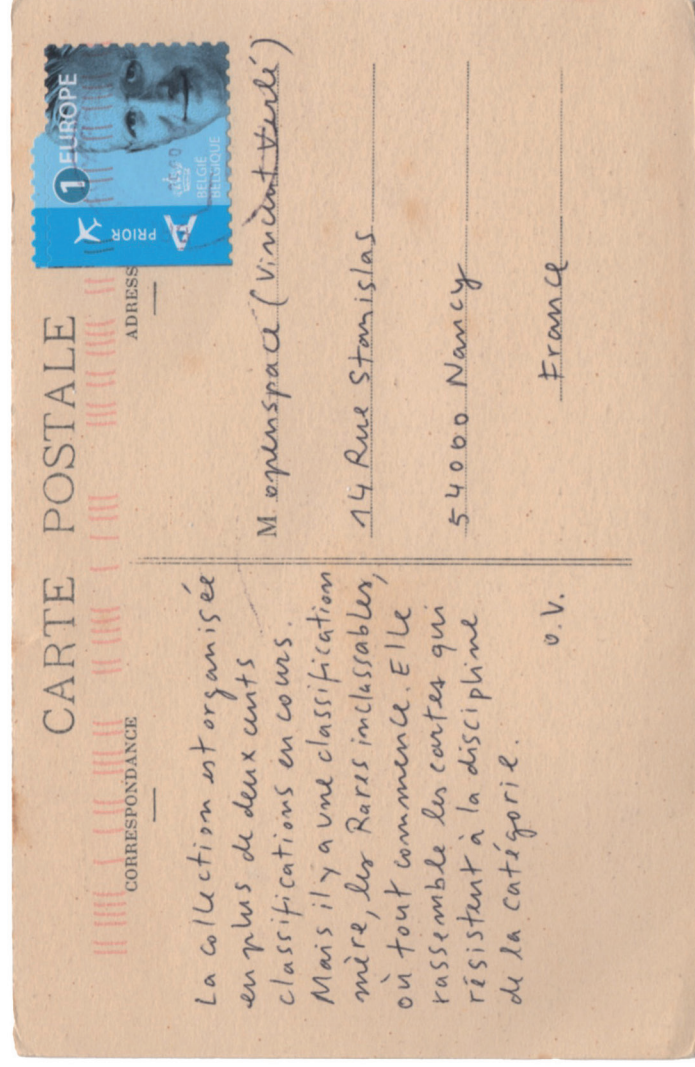 CARTE POSTALE
CORRESPONDANCE
ADRESSE
1 EUROPE
BELGIE
BELGIQUE
PRIOR
A
La collection est organisée
en plus de deux cents
classifications en cours.
Mais il y a une classification
mère, les Rares inclassables,
où tout commence. Elle
rassemble les cartes qui
résistent à la discipline
de la catégorie.
O.V.
M openspace (Vincent Verlé)
14 Rue Stanislas
54000 Nancy
France